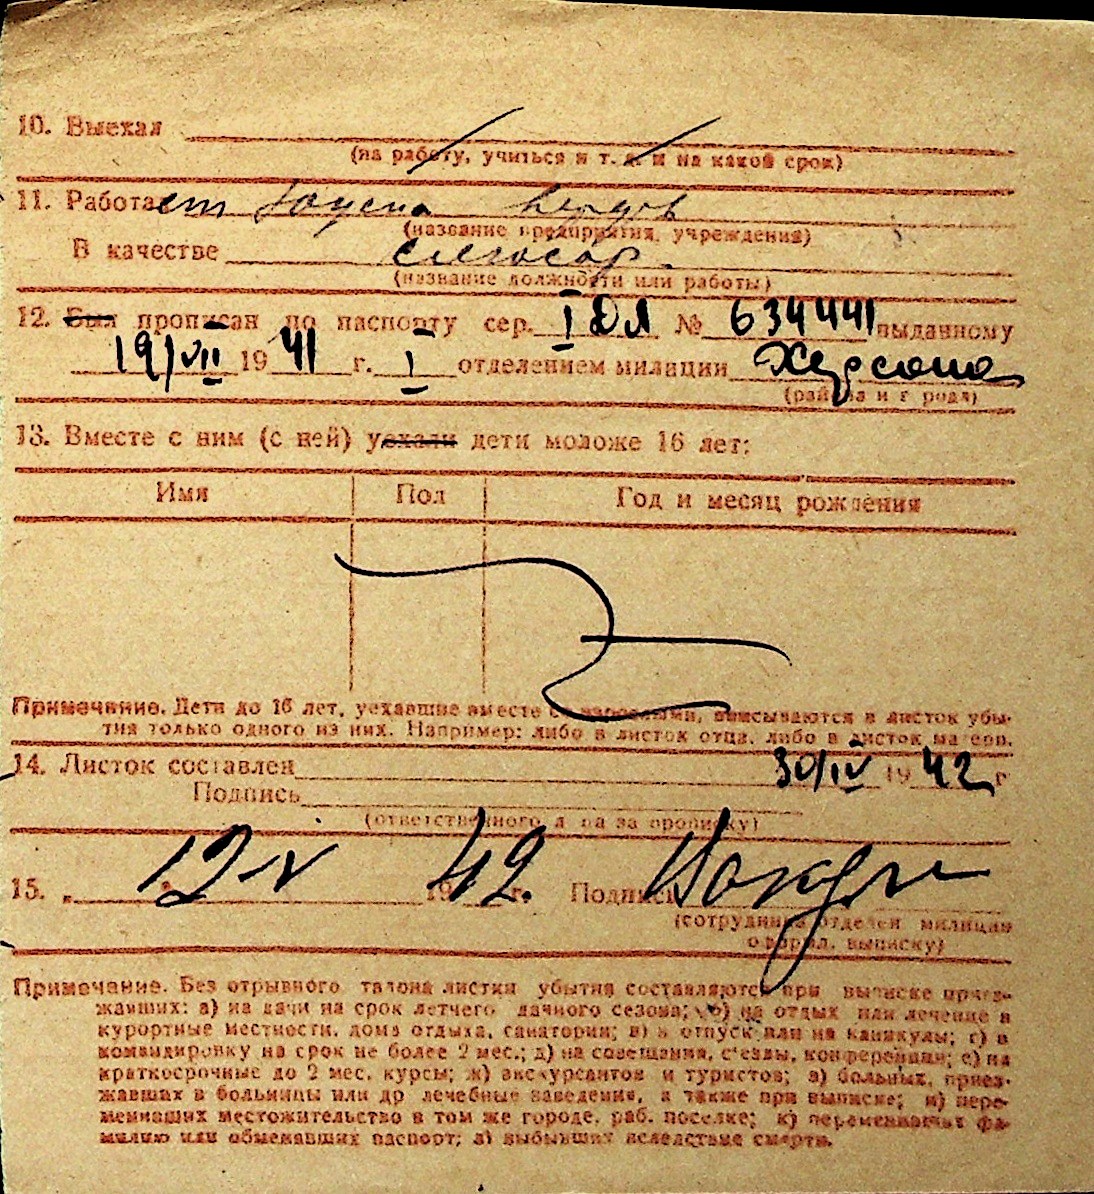 10. Выехал
(на работу, учиться и т. д. и на какой срок)
11. Работает
(название предприятия, учреждения)
В качестве слесар.
(название должности или работы)
12. Был прописан по паспорту сер. I ДЛ № 634441 выданному
19/VII 1941 г. I отделением милиции Херсона
(района и города)
13. Вместе с ним (с ней) уехали дети моложе 16 лет:
Имя Пол Год и месяц рождения
Примечание. Дети до 16 лет, уехавшие вместе с взрослыми, вписываются в листок убы-
тия только одного из них. Например: либо в листок отца, либо в листок матери.
14. Листок составлен 30/IV 1942 г
Подпись
(ответственного лица за прописку)
15. „ 12-V 1942 г. Подпись
(сотрудника отделен милиции
оформл. выписку)
Примечание. Без отрывного талона листки убытия составляются при выписке приез-
жавших: а) на дачи на срок летнего дачного сезона; б) на отдых или лечение в
курортные местности, дома отдыха, санатории; в) в отпуск или на каникулы; г) в
командировку на срок не более 2 мес.; д) на совещания, съезды, конференции; е) на
краткосрочные до 2 мес. курсы; ж) экскурсантов и туристов; з) больных, приез-
жавших в больницы или др лечебные заведения, а также при выписке; и) пере-
менивших местожительство в том же городе, раб. поселке; к) переменивших фа-
милию или обменявших паспорт; л) выбывших вследствие смерти.